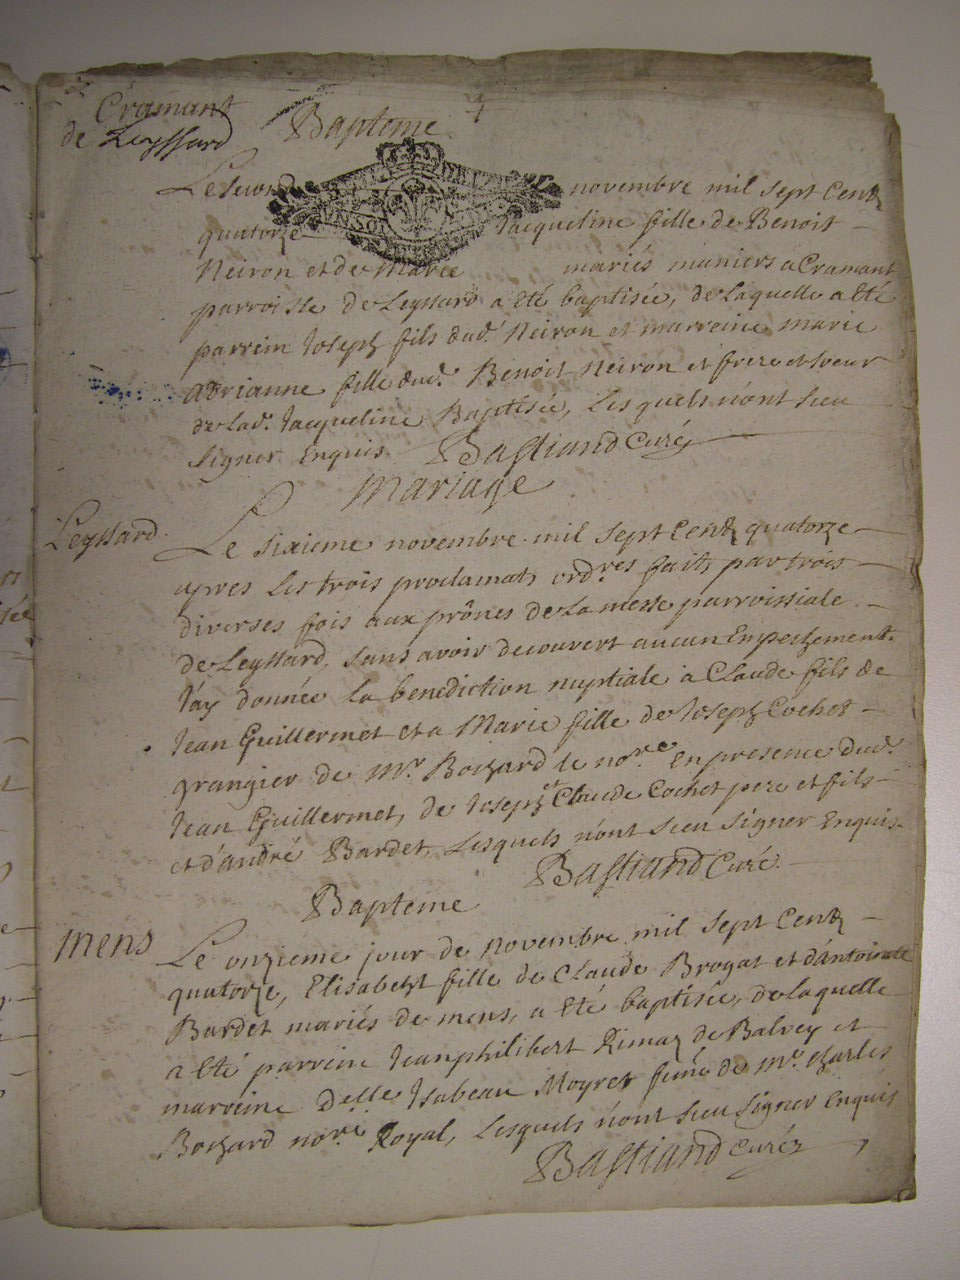 Cramant
de Leyssard
Bapteme
Le second novembre mil sept Centz
quatorze Jacqueline fille de Benoit
Neiron et de Marie mariés maniers a Cramant
parroisse de Leyssard a eté baptisée, de laquelle a eté
parrein Joseph fils dud.t Neiron et marreine marie
adrianne fille dud.t Benoit Neiron et frere et soeur
de lad. Jacqueline Baptisée, Lesquels n'ont sceu
signer Enquis Bastiand Curé
Mariage
Leyssard
Le sixieme novembre mil sept Centz quatorze
apres les trois proclamatz ord.res faitz par trois
diverses fois aux prônes de La messe parroissiale
de Leyssard, sans avoir decouvert aucun Empechement.
J'ay donnée la benediction nuptiale a Claude fils de
Jean Guillermet et a Marie fille de Joseph Cochet
grangier de Mr. Bochard le no.re En presence dud.
Jean Guillermet, de Joseph et Claude Cochet pere et fils
et d'andré Bardet, Lesquels n'ont sceu signer Enquis.
Bastiand Curé
Bapteme
Mens
Le onzieme jour de novembre mil sept Centz
quatorze, Elisabeht fille de Claude Brogat et d'antoinette
Bardet mariés de mens, a eté baptisée, de laquelle
a eté parrein Jeanphilibert Rimaz de Balvey et
marreine D.elle Isabeau Moyret fem̃e de Mr. Charles
Bochard no.re Royal, Lesquels n'ont sceu signer Enquis
Bastiand Curéz